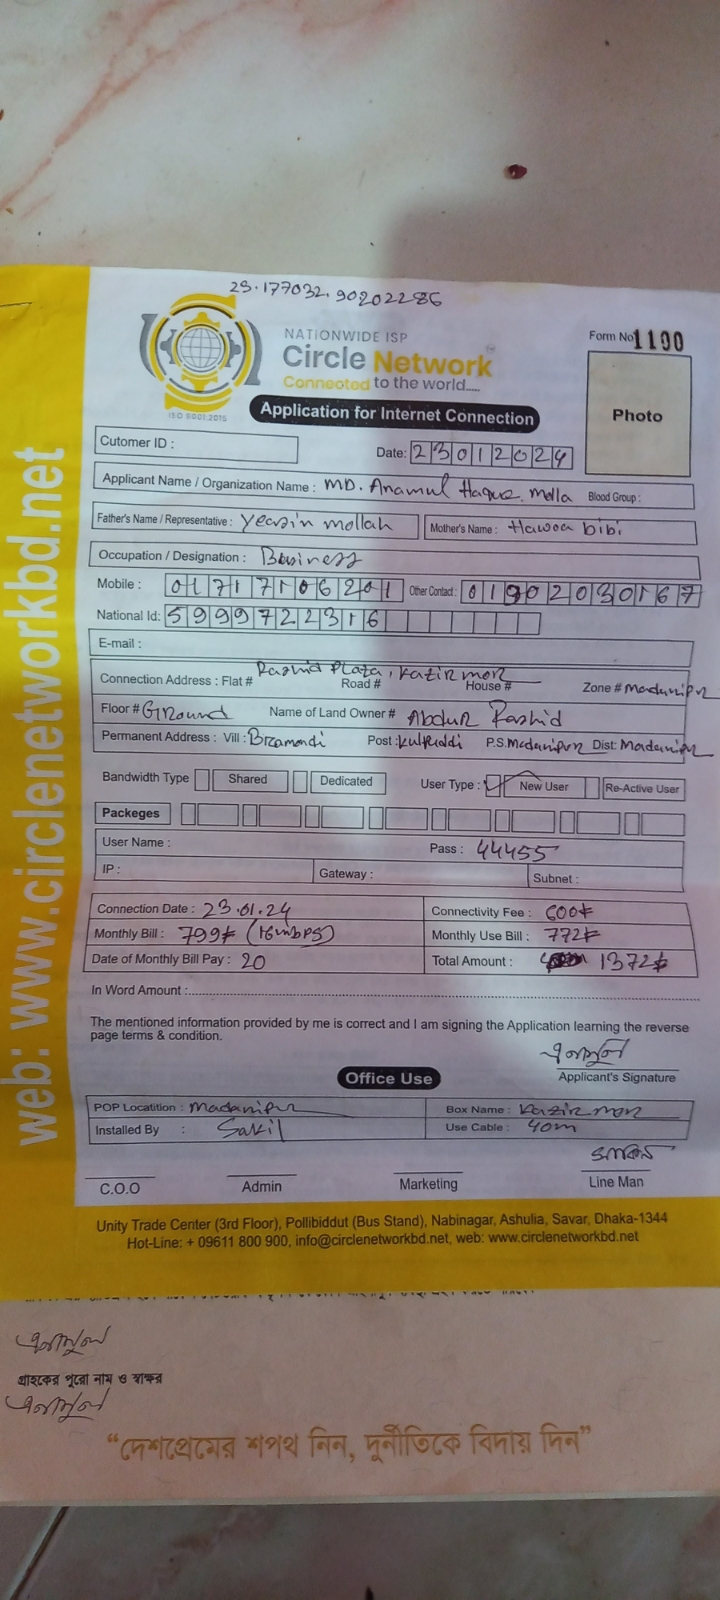 23.177032, 90.202286
NATIONWIDE ISP
Circle Network
Connected to the world.....
ISO 9001:2015
Form No 1100
Photo
Application for Internet Connection
Cutomer ID :
Date: 23012024
Applicant Name / Organization Name : MD. Anamul Haque Molla Blood Group :
Father's Name / Representative : Yeasin mollah Mother's Name : Hawoa bibi
Occupation / Designation : Business
Mobile : 01717106201 Other Contact : 01902030167
National Id: 5999722316
E-mail :
Connection Address : Flat # Rashid Plaza, Kazir mor Road # House # Zone # Madaripur
Floor # Ground Name of Land Owner # Abdur Rashid
Permanent Address : Vill : Bramondi Post : Kulpaddi P.S. Madaripur Dist: Madaripur
Bandwidth Type Shared Dedicated User Type : New User Re-Active User
Packeges
User Name : Pass : 44455
IP : Gateway : Subnet :
Connection Date : 23.01.24 Connectivity Fee : 600৳
Monthly Bill : 799৳ (16mbps) Monthly Use Bill : 772৳
Date of Monthly Bill Pay : 20 Total Amount : 1372৳
In Word Amount :
The mentioned information provided by me is correct and I am signing the Application learning the reverse
page terms & condition.
এনামুল
Applicant's Signature
Office Use
POP Locatition : Madaripur Box Name : Kazir mor
Installed By : Sakil Use Cable : 40m
C.O.O Admin Marketing Line Man
Unity Trade Center (3rd Floor), Pollibiddut (Bus Stand), Nabinagar, Ashulia, Savar, Dhaka-1344
Hot-Line: + 09611 800 900, info@circlenetworkbd.net, web: www.circlenetworkbd.net
web: www.circlenetworkbd.net
এনামুল
গ্রাহকের পুরো নাম ও স্বাক্ষর
এনামুল
“দেশপ্রেমের শপথ নিন, দুর্নীতিকে বিদায় দিন”